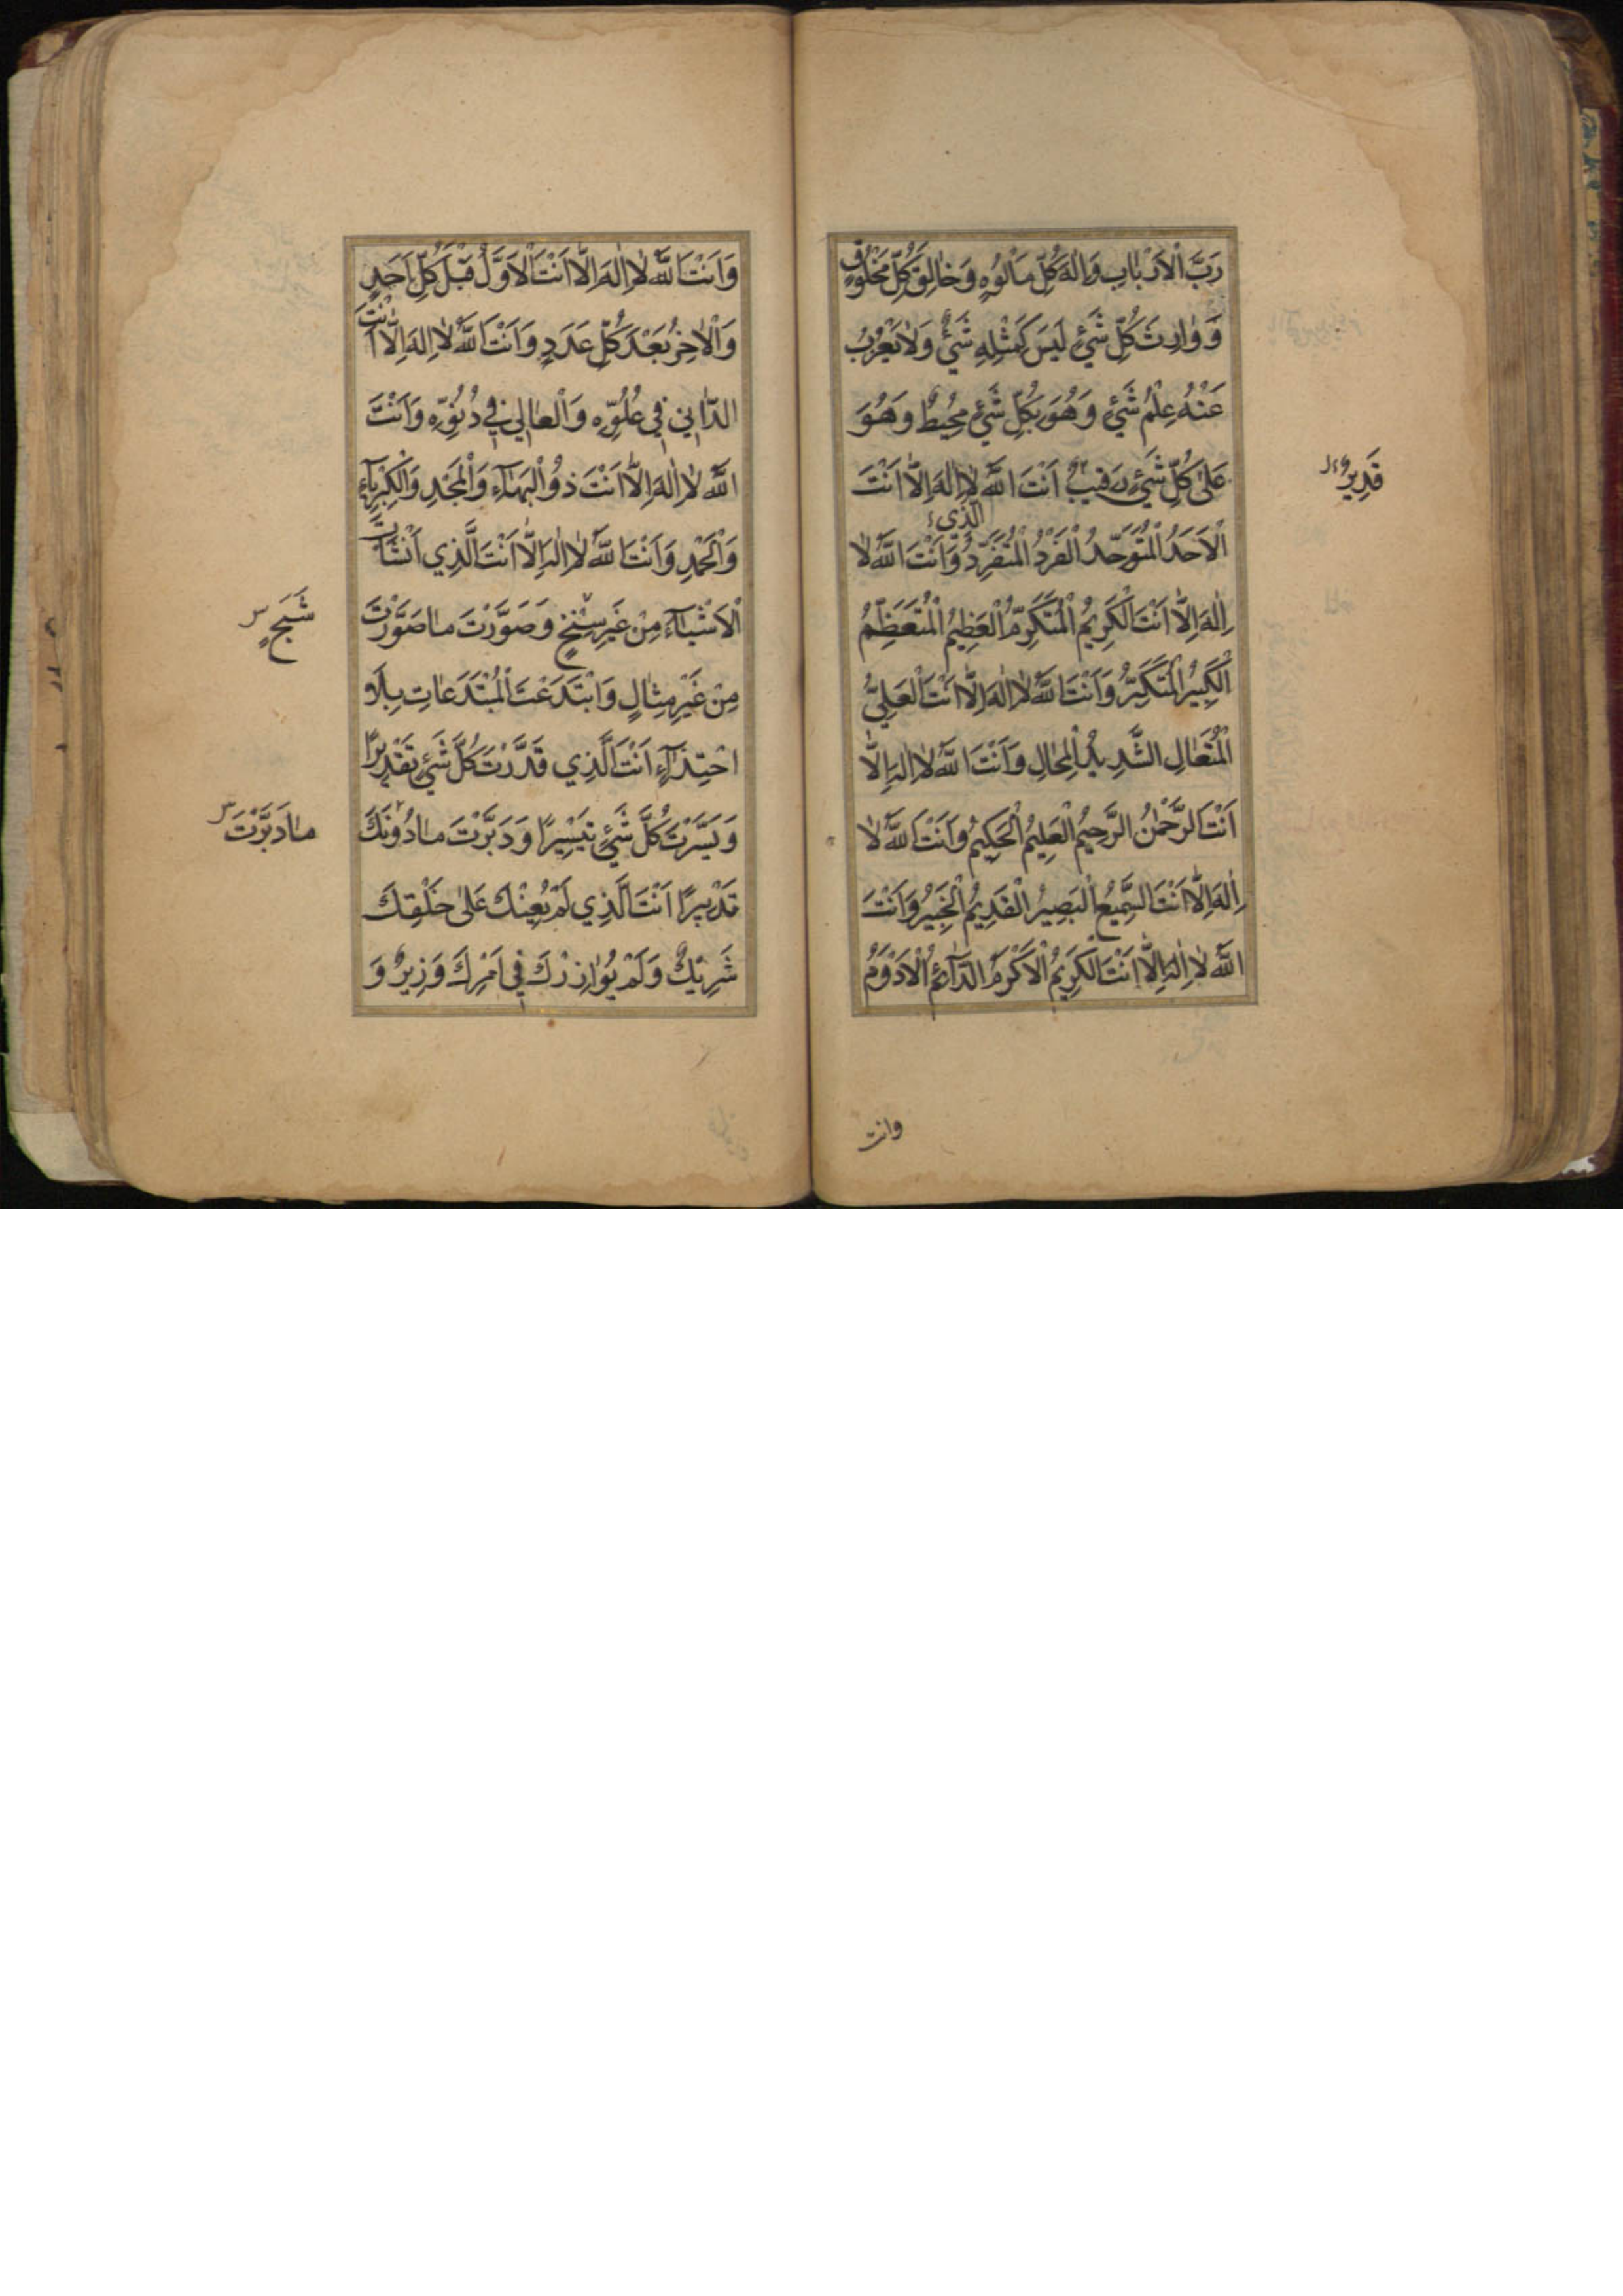 رَبَّ الْاَرْبٰابِ وَاِلٰهَ كُلِّ مَاْلُوُهٍ وَخٰالِقَ كُلِّ مَخْلُوُقٍ
وَوٰارِثَ كُلِّ شَیْءٍ لَيْسَ كَمِثْلِهِ شَیْءٌ وَلاٰ يَعْزُبُ
عَنْهُ عِلْمُ شَیْءٍ وَهُوَ بِكُلِّ شَیْءٍ مُحِيطٌ وَهُوَ
عَلیٰ كُلِّ شَیْءٍ رَقِيبٌ اَنْتَ اللّٰهُ لاٰ اِلٰهَ اِلاّٰ اَنْتَ
قَدِيرٌ
الَّذِي
الْاَحَدُ الْمُتَوَحِّدُ الْفَرْدُ الْمُتَفَرِّدُ وَاَنْتَ اللّٰهُ لاٰ
اِلٰهَ اِلاّٰ اَنْتَ الْكَرِيمُ الْمُتَكَرِّمُ الْعَظِيمُ الْمُتَعَظِّمُ
الْكَبِيرُ الْمُتَكَبِّرُ وَاَنْتَ اللّٰهُ لاٰ اِلٰهَ اِلاّٰ اَنْتَ الْعَلِيُّ
الْمُتَعٰالِ الشَّدِيدُ الْمِحٰالِ وَاَنْتَ اللّٰهُ لاٰ اِلٰهَ اِلاّٰ
اَنْتَ الرَّحْمٰنُ الرَّحِيمُ الْعَلِيمُ الْحَكِيمُ وَاَنْتَ اللّٰهُ لاٰ
اِلٰهَ اِلاّٰ اَنْتَ السَّمِيعُ الْبَصِيرُ الْقَدِيمُ الْخَبِيرُ وَاَنْتَ
اللّٰهُ لاٰ اِلٰهَ اِلاّٰ اَنْتَ الْكَرِيمُ الْاَكْرَمُ الدّٰآئِمُ الْاَدْوَمُ
وانت
وَاَنْتَ اللّٰهُ لاٰ اِلٰهَ اِلاّٰ اَنْتَ الْاَوَّلُ قَبْلَ كُلِّ اَحَدٍ
وَالْاٰخِرُ بَعْدَ كُلِّ عَدَدٍ وَاَنْتَ اللّٰهُ لاٰ اِلٰهَ اِلاّٰ اَنْتَ
الدّٰانِي فِي عُلُوِّهِ وَالْعٰالِي فِي دُنُوِّهِ وَاَنْتَ
اللّٰهُ لاٰ اِلٰهَ اِلاّٰ اَنْتَ ذُو الْبَهٰآءِ وَالْمَجْدِ وَالْكِبْرِيٰآءِ
وَالْحَمْدِ وَاَنْتَ اللّٰهُ لاٰ اِلٰهَ اِلاّٰ اَنْتَ الَّذِي اَنْشَاْتَ
الْاَشْيٰآءَ مِنْ غَيْرِ سِنْخٍ وَصَوَّرْتَ مٰا صَوَّرْتَ
شَبَحٍ
مِنْ غَيْرِ مِثٰالٍ وَابْتَدَعْتَ الْمُبْتَدَعٰاتِ بِلاٰ
احْتِذٰآءٍ اَنْتَ الَّذِي قَدَّرْتَ كُلَّ شَیْءٍ تَقْدِيرًا
وَيَسَّرْتَ كُلَّ شَیْءٍ تَيْسِيرًا وَدَبَّرْتَ مٰا دُونَكَ
مٰا دَبَّرْتَ
تَدْبِيرًا اَنْتَ الَّذِي لَمْ يُعِنْكَ عَلیٰ خَلْقِكَ
شَرِيكٌ وَلَمْ يُوٰازِرْكَ فِي اَمْرِكَ وَزِيرٌ وَ